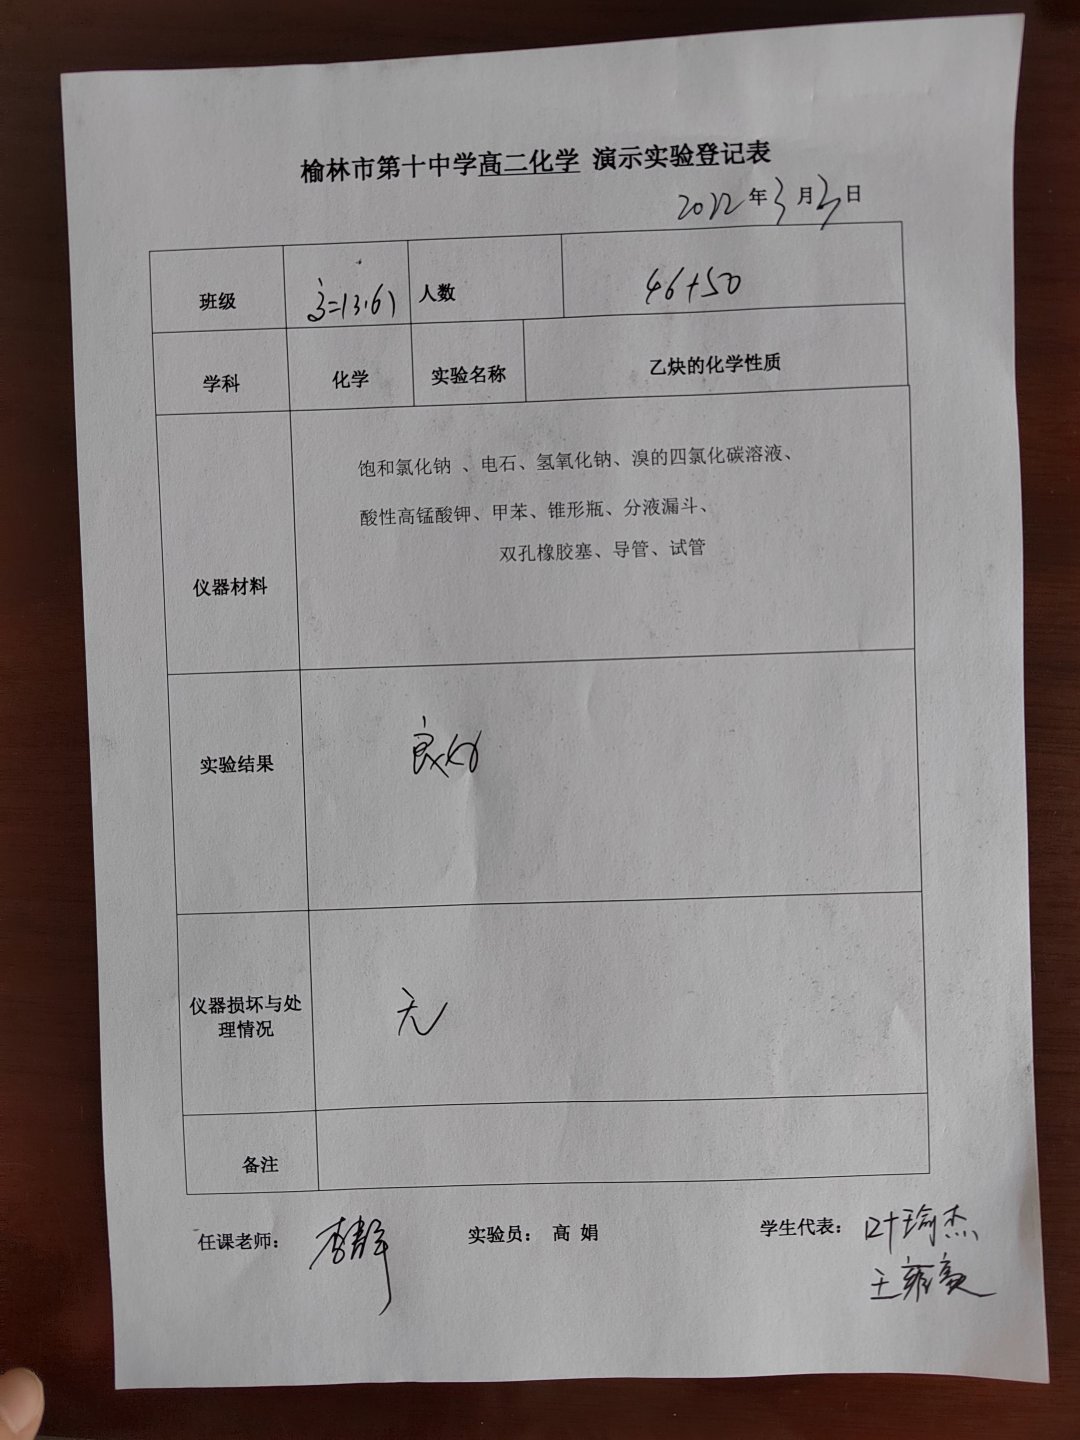 榆林市第十中学高二化学 演示实验登记表
2022年3月3日
班级
人数 46+50
学科 化学 实验名称 乙炔的化学性质
仪器材料
饱和氯化钠 、电石、氢氧化钠、溴的四氯化碳溶液、
酸性高锰酸钾、甲苯、锥形瓶、分液漏斗、
双孔橡胶塞、导管、试管
实验结果 良好
仪器损坏与处
理情况
无
备注
任课老师： 李静 实验员： 高 娟 学生代表： 叶瑜杰
王雍